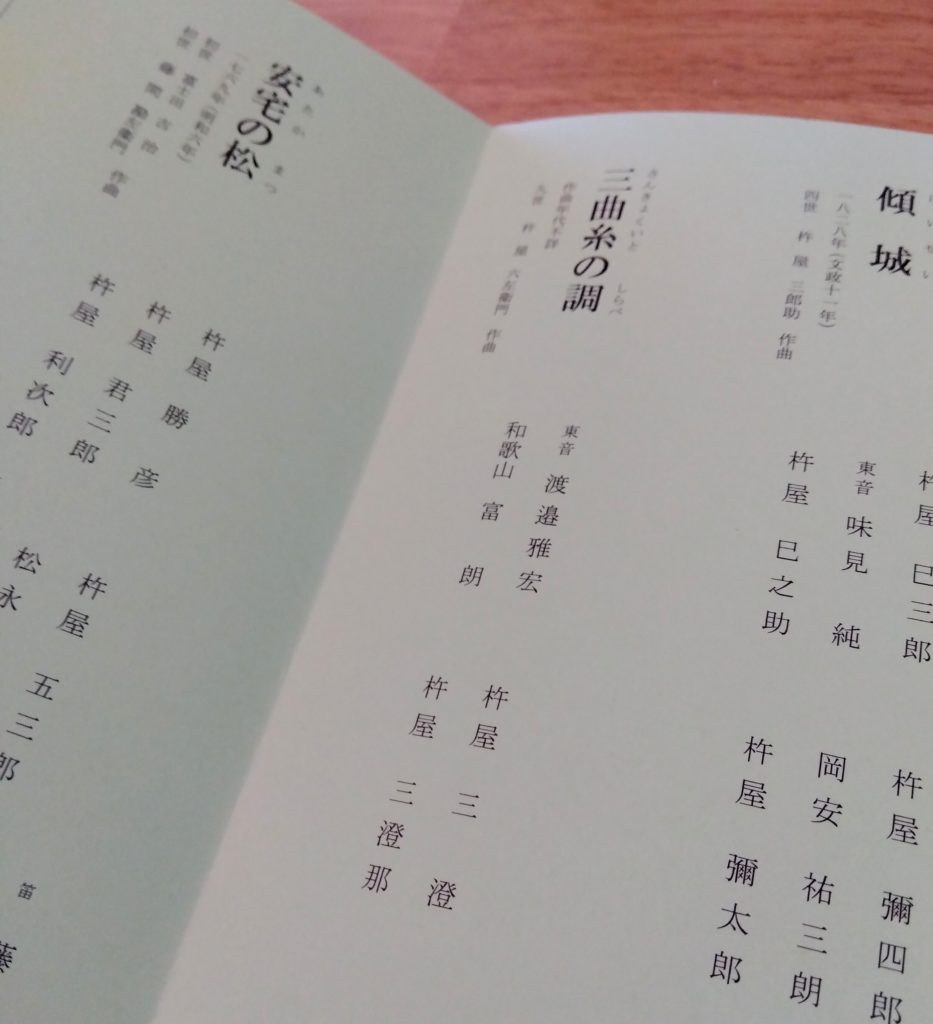 傾城
一八二八年(文政十一年)
四世 杵屋 三郎助 作曲
杵屋 巳三郎
東音 味見 純
杵屋 巳之助
杵屋 彌四郎
岡安 祐三朗
杵屋 彌太郎
さんきょくいと しらべ
三曲糸の調
作曲年代不詳
九世 杵屋 六左衛門 作曲
東音 渡邉雅宏
和歌山 富朗
杵屋 三澄
杵屋 三澄那
あたか まつ
安宅の松
一七六九年(明和六年)
初世 富士田 吉治
初世 藤間 勘左衛門 作曲
杵屋 勝彦
杵屋 君三郎
杵屋 利次郎
杵屋 五三郎
松永
笛